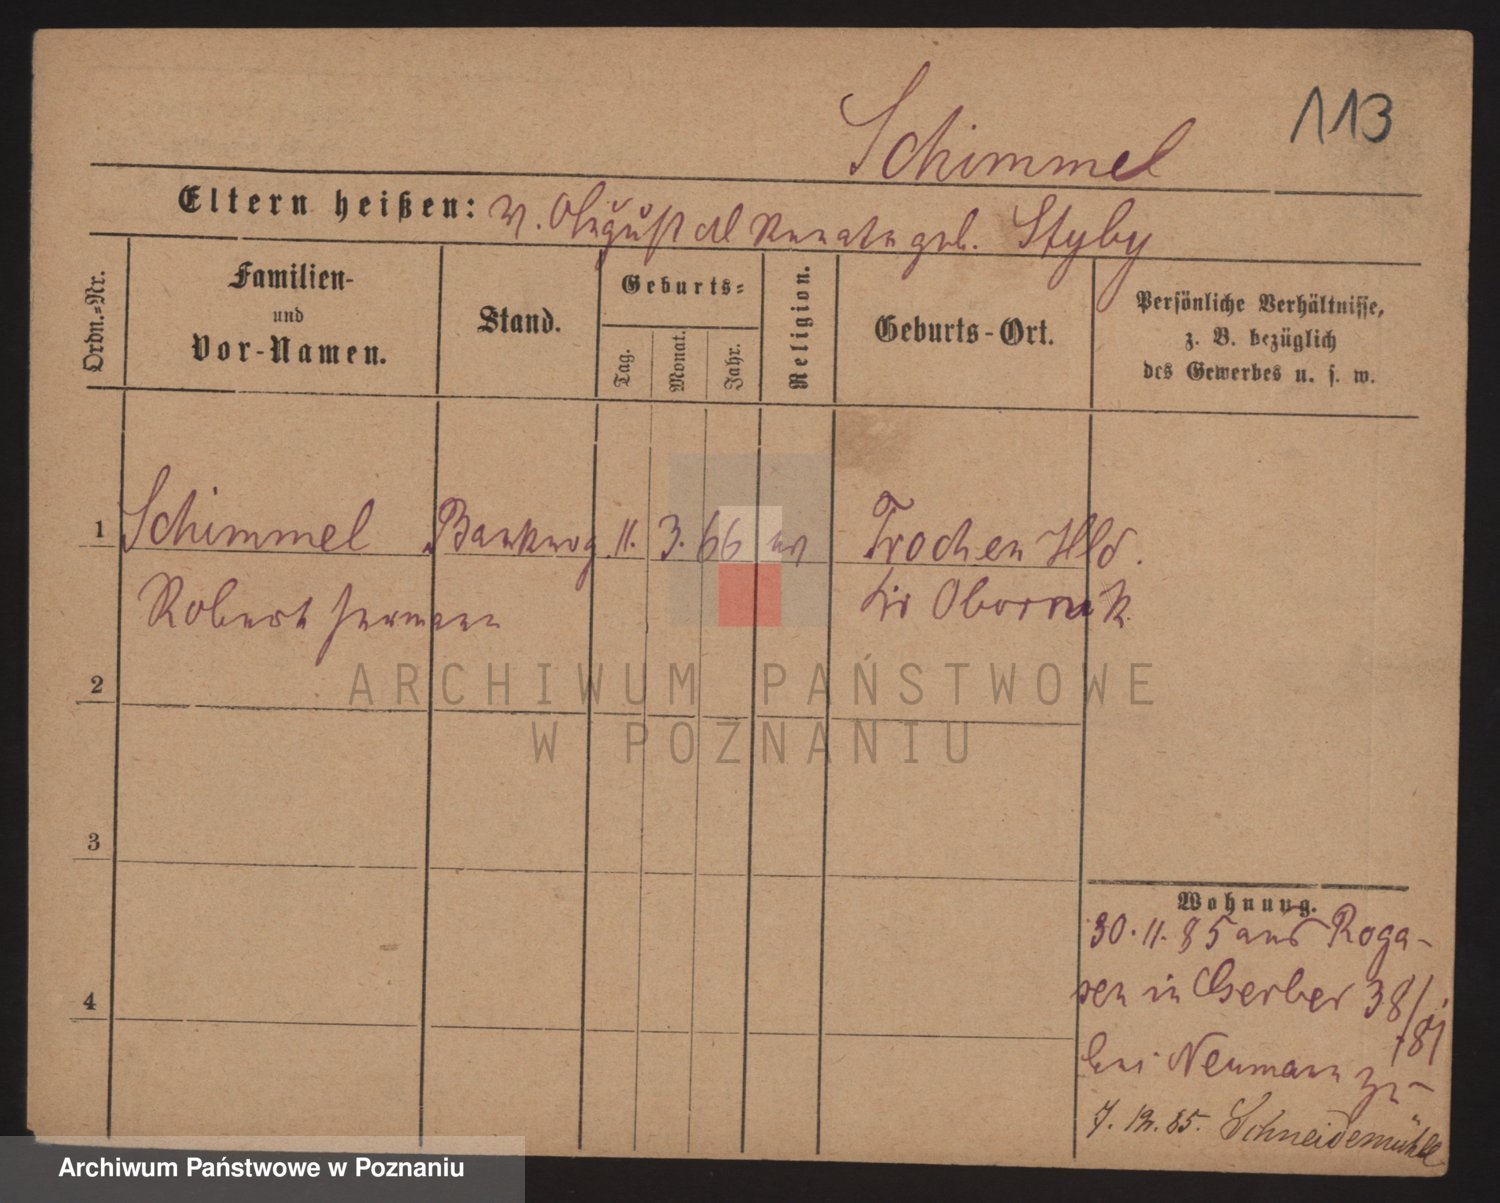 Schimmel
113
Eltern heißen: v. August u Renate geb. Styby
Ordn.-Nr.
Familien-
und
Vor-Namen.
Stand.
Geburts-
Tag.
Monat.
Jahr.
Religion.
Geburts-Ort.
Persönliche Verhältnisse,
z. B. bezüglich
des Gewerbes u. s. w.
1 Schimmel 11. 3. 66 ev Trochen Hld.
Robert Hermann Krs Obornik
2
3
4
Wohnung.
30.11.85 aus Roga-
sen in Gerber 38/
bei Neumann zu-
7. 12. 85. Schneidemühl
ARCHIWUM PAŃSTWOWE
W POZNANIU
Archiwum Państwowe w Poznaniu